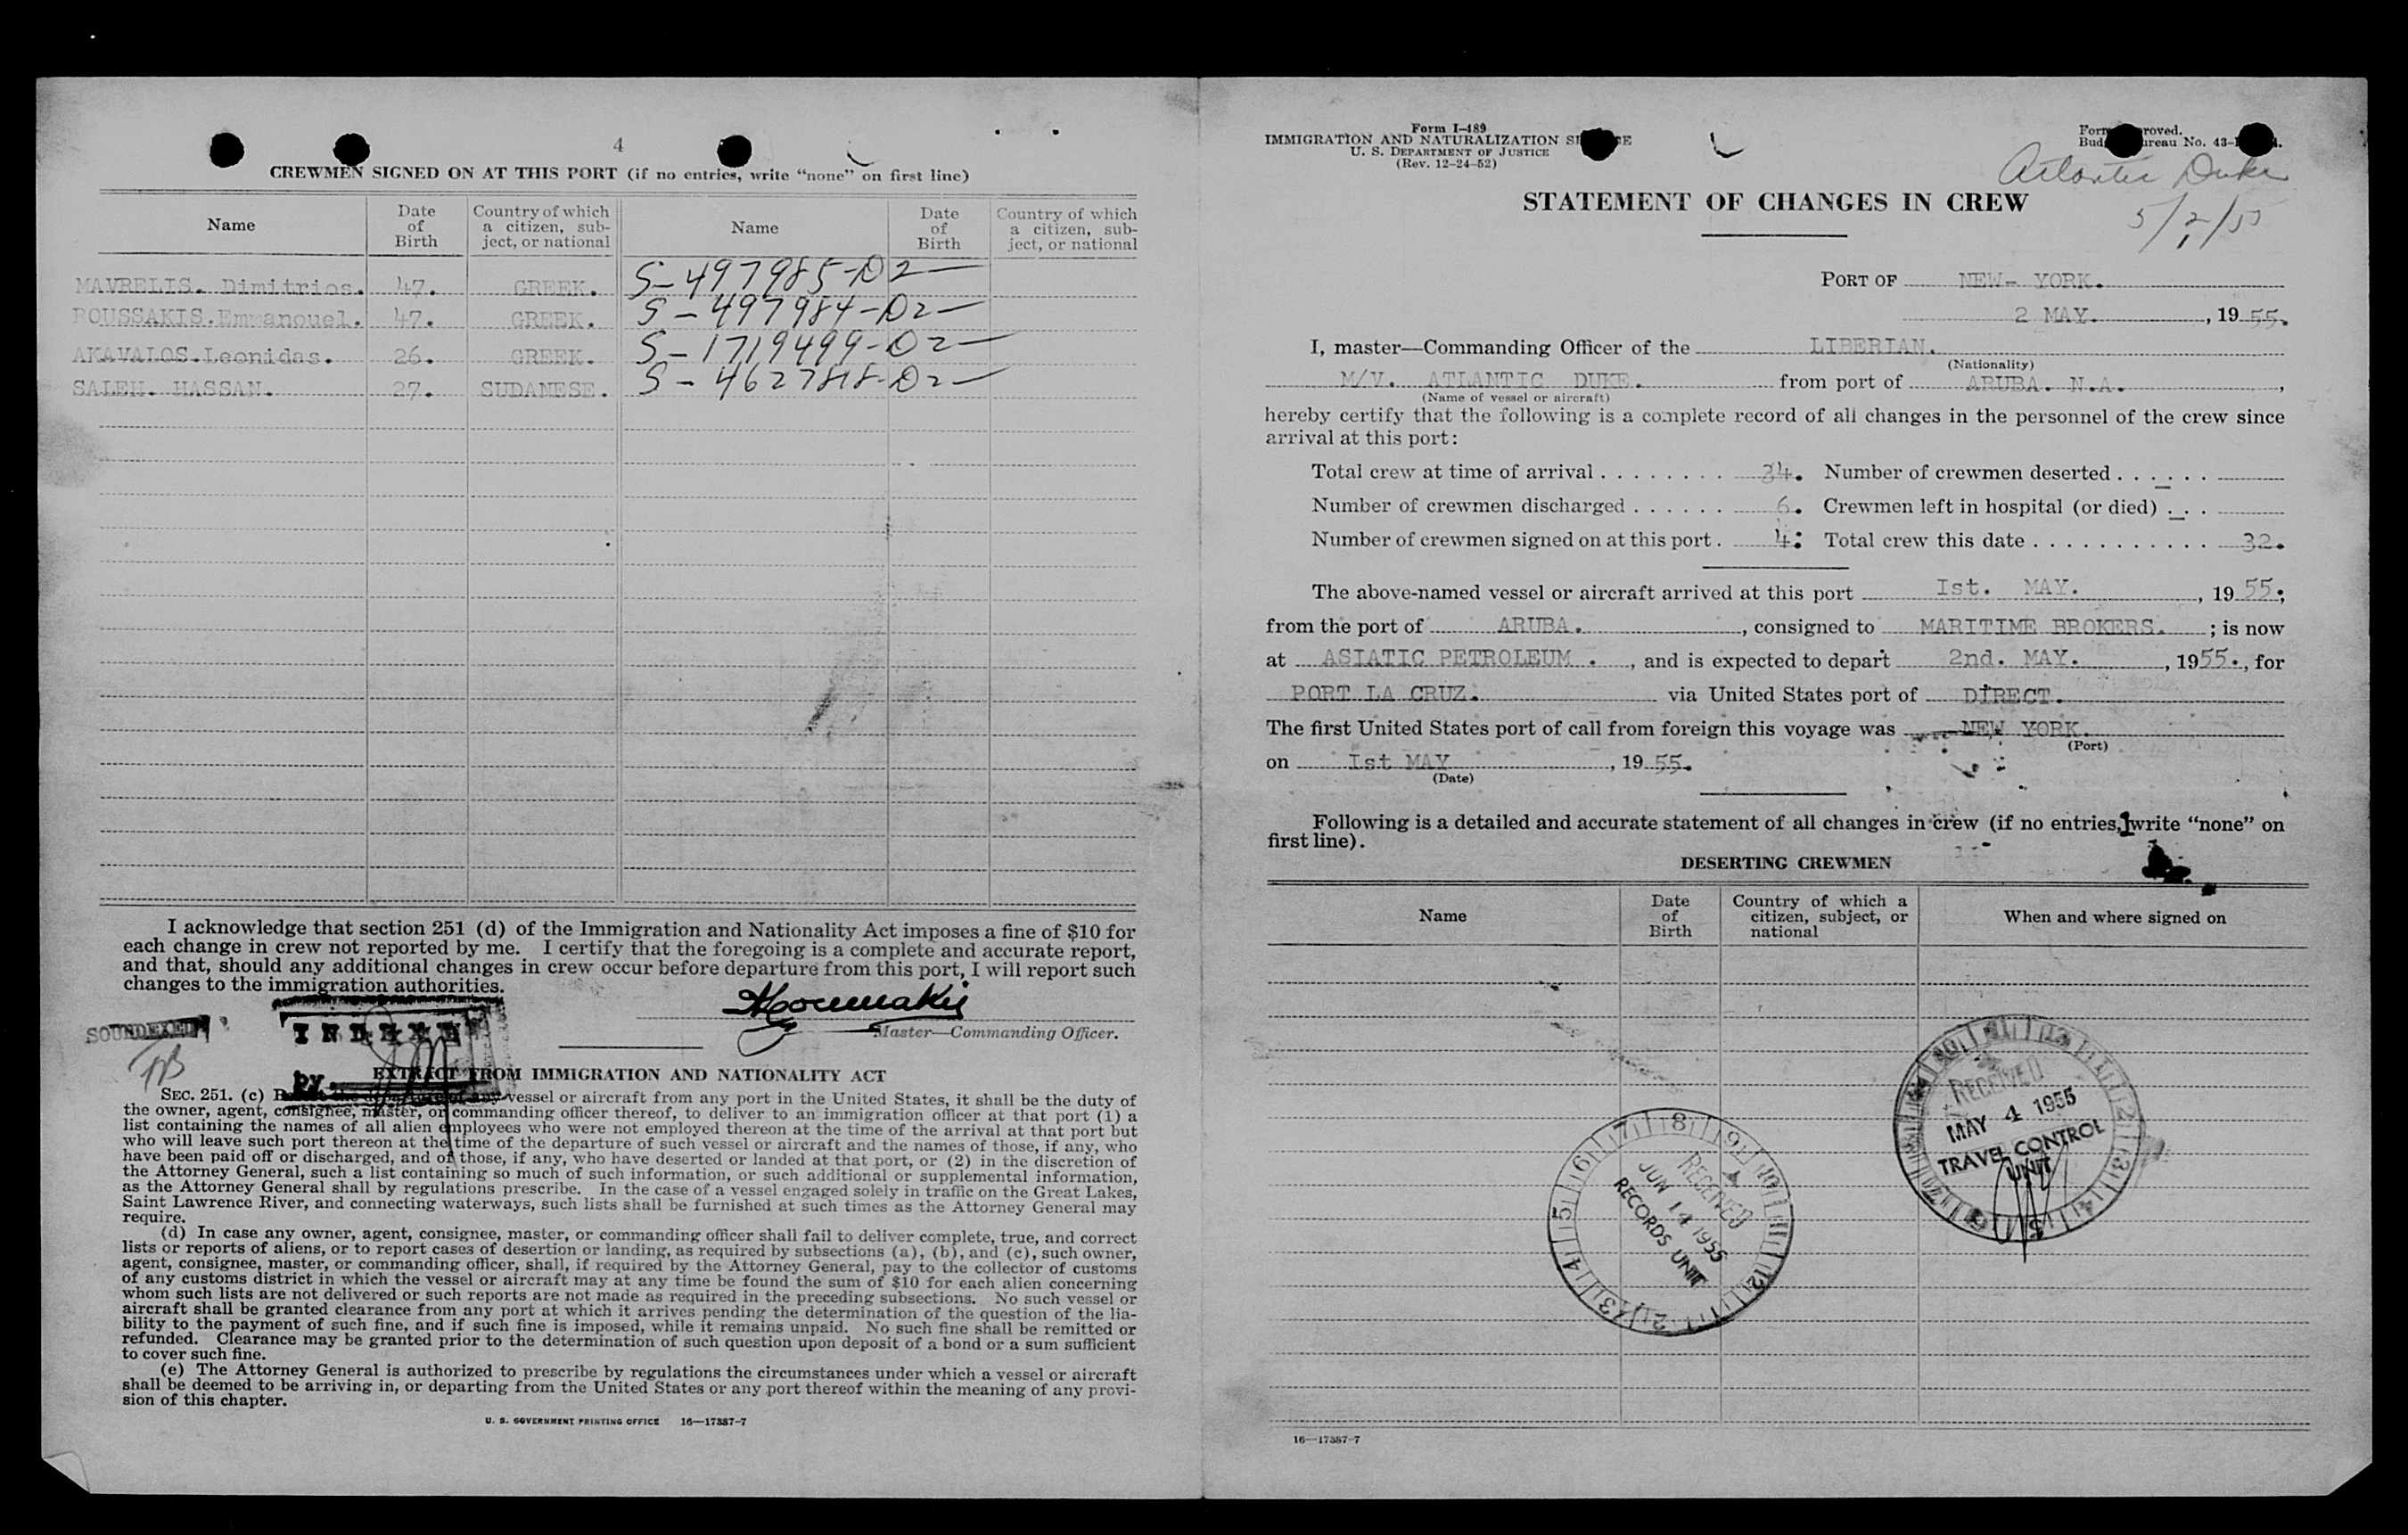 4
CREWMEN SIGNED ON AT THIS PORT (if no entries, write “none” on first line)
Name Date of Birth Country of which a citizen, subject, or national Name Date of Birth Country of which a citizen, subject, or national
MAVRELIS. Dimitrios. 47. GREEK. S-497985-D2
ROUSSAKIS.Emmanouel. 47. GREEK. S-497984-D2
AKAVALOS.Leonidas. 26. GREEK. S-1719499-D2
SALEH. HASSAN. 27. SUDANESE. S-4627818-D2
I acknowledge that section 251 (d) of the Immigration and Nationality Act imposes a fine of $10 for
each change in crew not reported by me. I certify that the foregoing is a complete and accurate report,
and that, should any additional changes in crew occur before departure from this port, I will report such
changes to the immigration authorities.
Master—Commanding Officer.
SOUNDEXED
INDEXED
by
EXTRACT FROM IMMIGRATION AND NATIONALITY ACT
SEC. 251. (c) vessel or aircraft from any port in the United States, it shall be the duty of
the owner, agent, consignee, master, or commanding officer thereof, to deliver to an immigration officer at that port (1) a
list containing the names of all alien employees who were not employed thereon at the time of the arrival at that port but
who will leave such port thereon at the time of the departure of such vessel or aircraft and the names of those, if any, who
have been paid off or discharged, and of those, if any, who have deserted or landed at that port, or (2) in the discretion of
the Attorney General, such a list containing so much of such information, or such additional or supplemental information,
as the Attorney General shall by regulations prescribe. In the case of a vessel engaged solely in traffic on the Great Lakes,
Saint Lawrence River, and connecting waterways, such lists shall be furnished at such times as the Attorney General may
require.
(d) In case any owner, agent, consignee, master, or commanding officer shall fail to deliver complete, true, and correct
lists or reports of aliens, or to report cases of desertion or landing, as required by subsections (a), (b), and (c), such owner,
agent, consignee, master, or commanding officer, shall, if required by the Attorney General, pay to the collector of customs
of any customs district in which the vessel or aircraft may at any time be found the sum of $10 for each alien concerning
whom such lists are not delivered or such reports are not made as required in the preceding subsections. No such vessel or
aircraft shall be granted clearance from any port at which it arrives pending the determination of the question of the lia-
bility to the payment of such fine, and if such fine is imposed, while it remains unpaid. No such fine shall be remitted or
refunded. Clearance may be granted prior to the determination of such question upon deposit of a bond or a sum sufficient
to cover such fine.
(e) The Attorney General is authorized to prescribe by regulations the circumstances under which a vessel or aircraft
shall be deemed to be arriving in, or departing from the United States or any port thereof within the meaning of any provi-
sion of this chapter.
U. S. GOVERNMENT PRINTING OFFICE 16—17387-7
Form I-489
IMMIGRATION AND NATURALIZATION
U. S. DEPARTMENT OF JUSTICE
(Rev. 12-24-52)
Atlantic Duke
5/2/55
STATEMENT OF CHANGES IN CREW
PORT OF NEW- YORK.
2 MAY. , 19 55.
I, master—Commanding Officer of the LIBERIAN.
(Nationality)
M/V. ATLANTIC DUKE. from port of ARUBA. N.A. ,
(Name of vessel or aircraft)
hereby certify that the following is a complete record of all changes in the personnel of the crew since
arrival at this port:
Total crew at time of arrival 34. Number of crewmen deserted -
Number of crewmen discharged 6. Crewmen left in hospital (or died) -
Number of crewmen signed on at this port. 4: Total crew this date 32.
The above-named vessel or aircraft arrived at this port Ist. MAY. , 19 55.
from the port of ARUBA. , consigned to MARITIME BROKERS. ; is now
at ASIATIC PETROLEUM . , and is expected to depart 2nd. MAY. , 1955., for
PORT LA CRUZ. via United States port of DIRECT.
The first United States port of call from foreign this voyage was NEW YORK.
(Port)
on Ist MAY , 19 55.
(Date)
Following is a detailed and accurate statement of all changes in crew (if no entries, write “none” on
first line).
DESERTING CREWMEN
Name Date of Birth Country of which a citizen, subject, or national When and where signed on
RECEIVED
MAY 4 1955
TRAVEL CONTROL
UNIT
RECEIVED
JUN 14 1955
RECORDS UNIT
16—17387-7